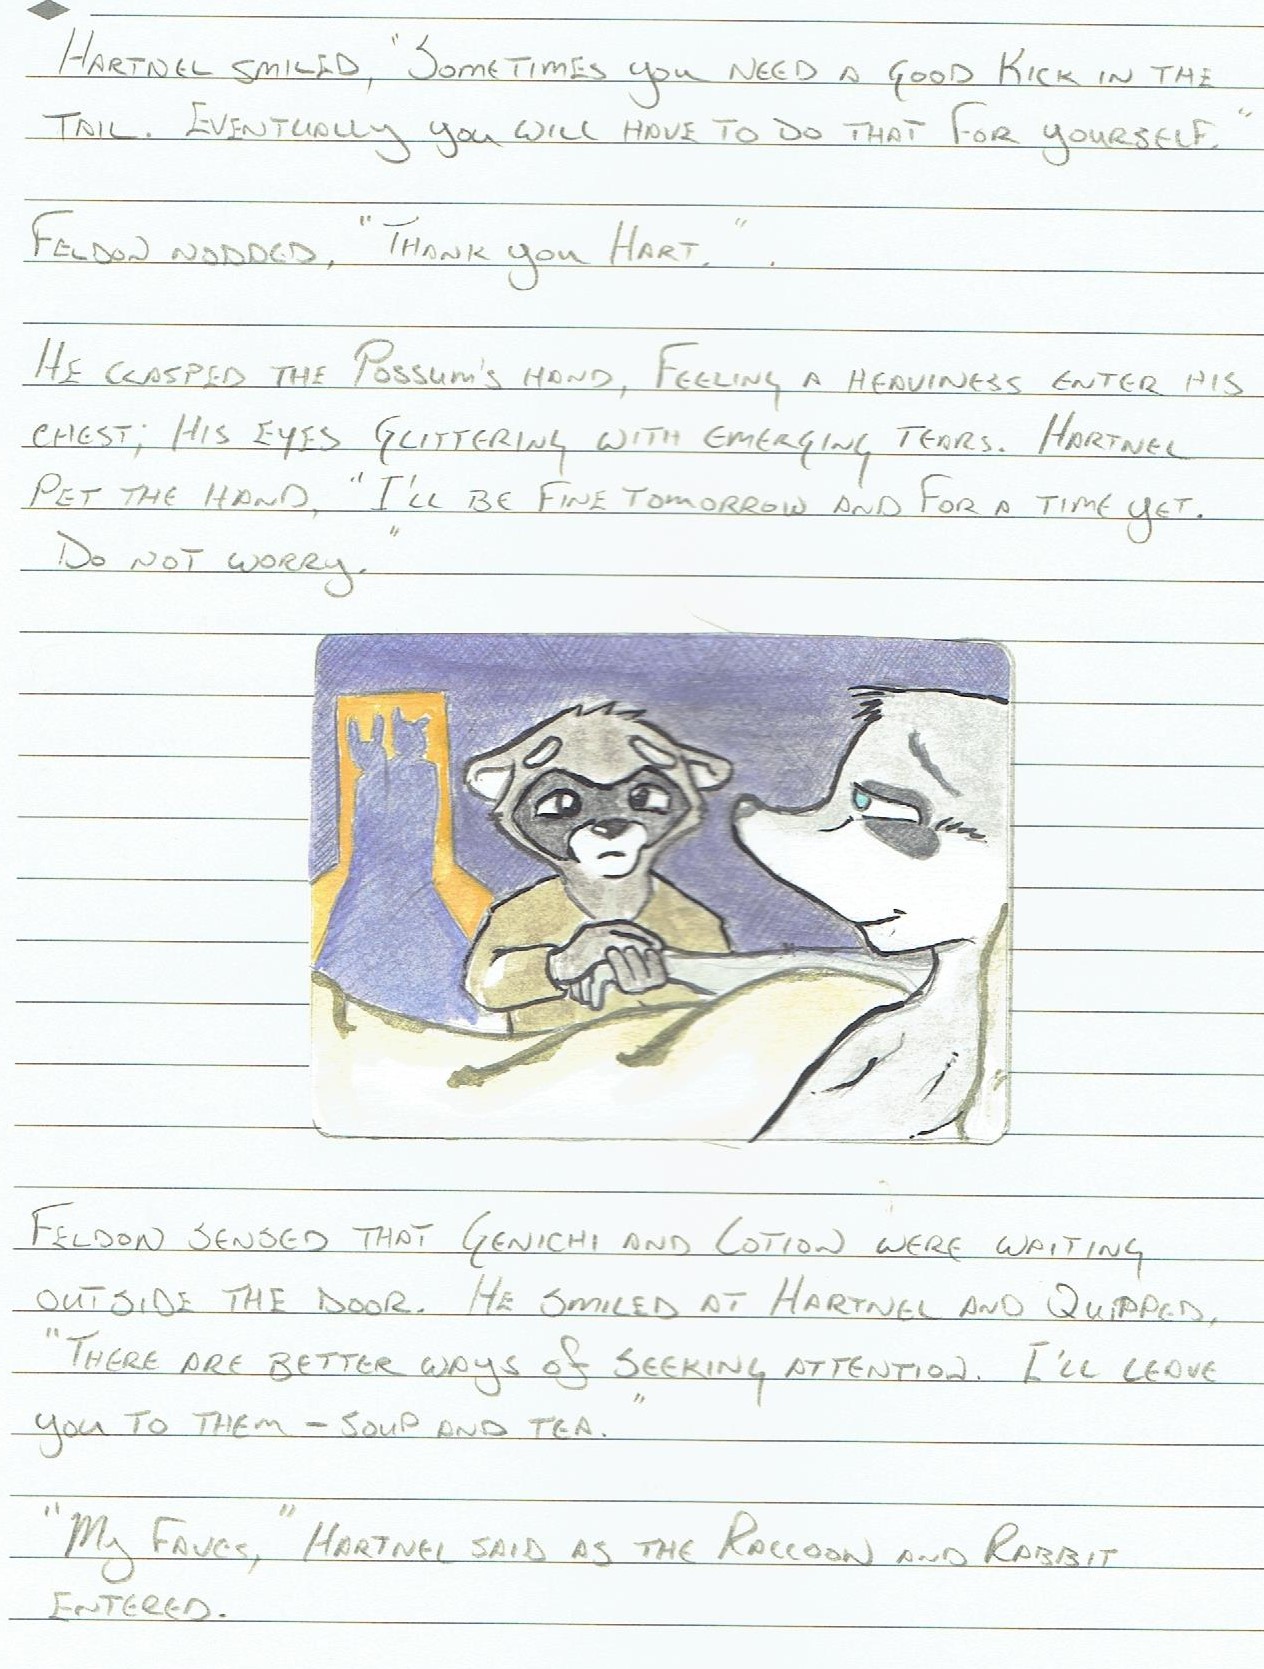 Hartnel smiled, "Sometimes you need a good kick in the
tail. Eventually you will have to do that for yourself."
Feldon nodded, "Thank you Hart.".
He clasped the Possum's hand, feeling a heaviness enter his
chest; his eyes glittering with emerging tears. Hartnel
pet the hand, "I'll be fine tomorrow and for a time yet.
Do not worry."
Feldon sensed that Genichi and Lotion were waiting
outside the door. He smiled at Hartnel and quipped,
"There are better ways of seeking attention. I'll leave
you to them – soup and tea."
"My faves," Hartnel said as the Raccoon and Rabbit
entered.